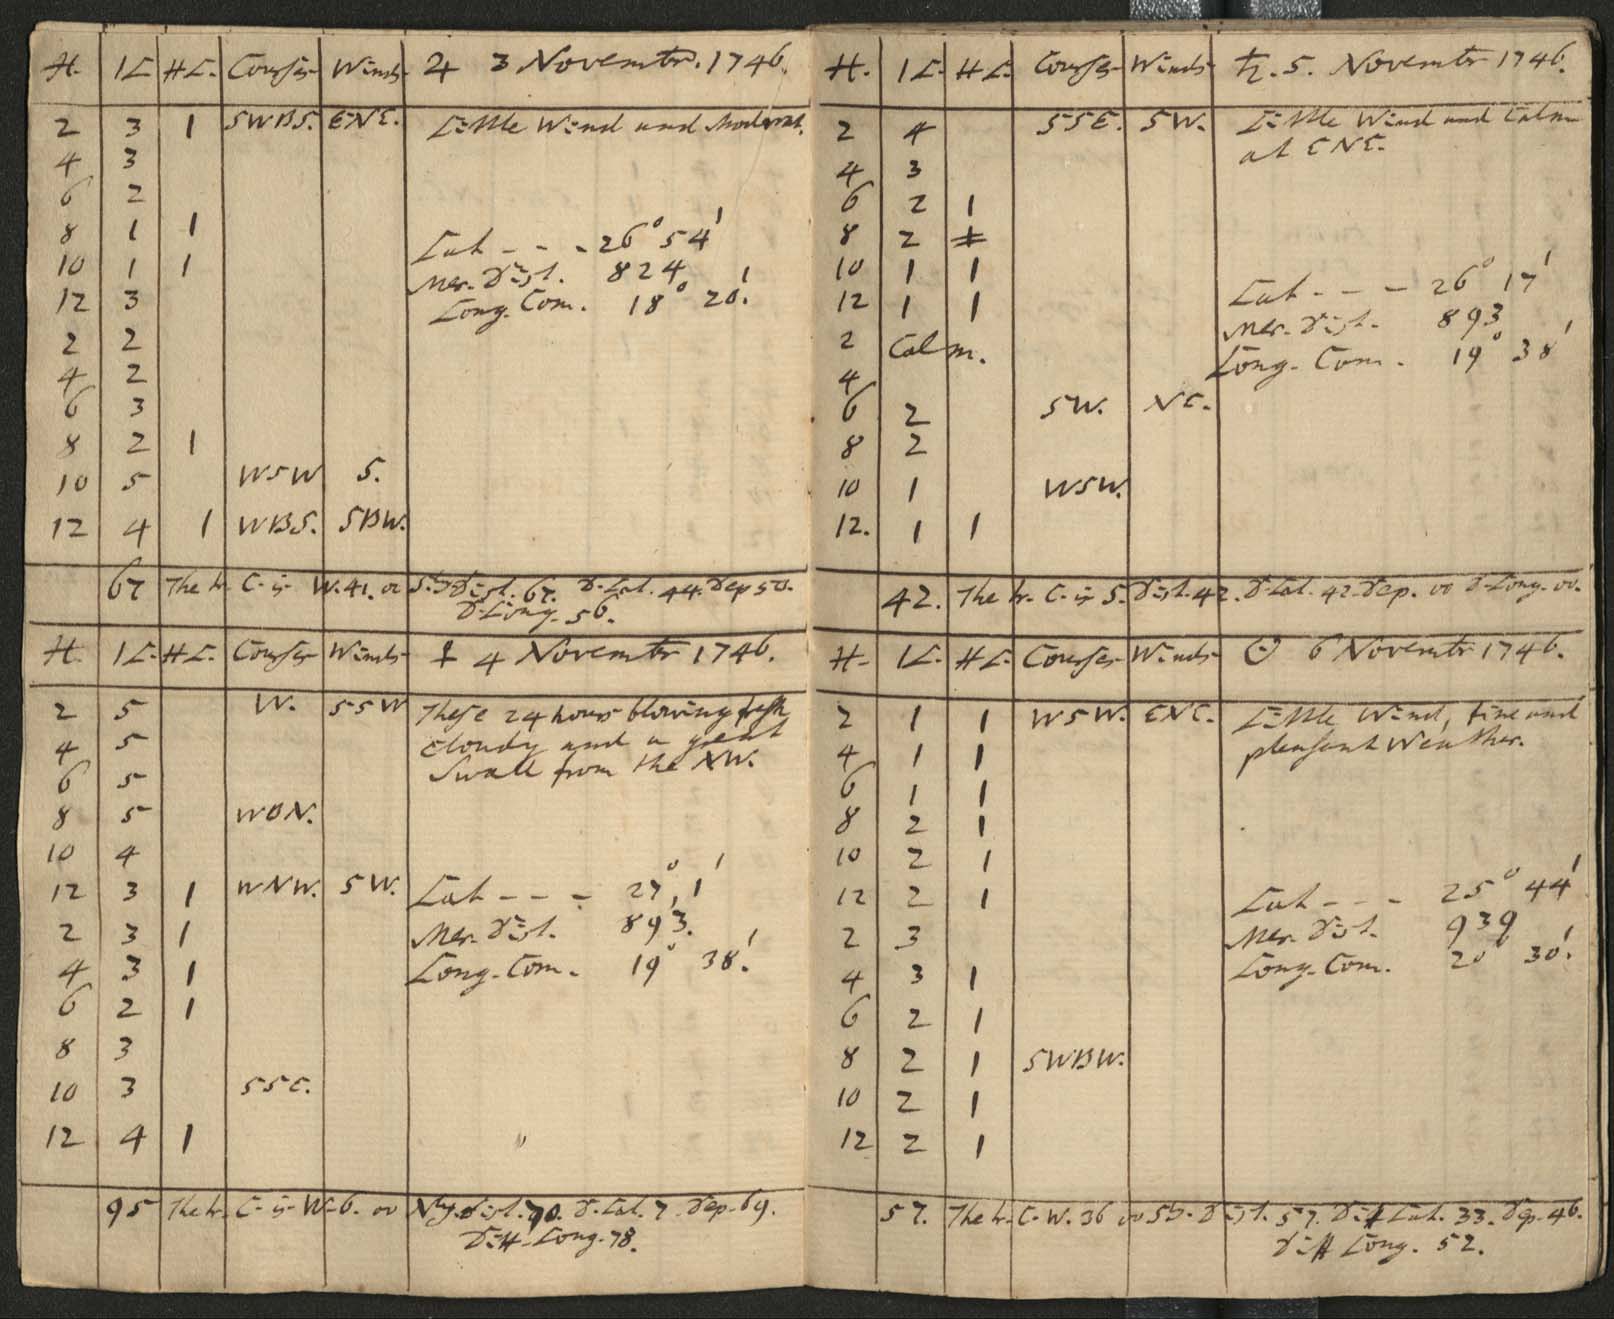 H. | K | HK. | Courses | Winds | ♃ 3 Novembr. 1746.
2 | 3 | 1 | SWBS. | ENE. | Little Wind and Moderat.
4 | 3
6 | 2
8 | 1 | 1 | Lat - - - 26° 54'
10 | 1 | 1 | Mer. Dist. 824
12 | 3 | Long. Com. 18° 20'.
2 | 2
4 | 2
6 | 3
8 | 2 | 1
10 | 5 | WSW | S.
12 | 4 | 1 | WBS. | SBW.
67 The tr. C. is W. 41. 00 Sly Dist. 67. D. Lat. 44. Dep 50.
D. Long. 56.
H. | K. | HK. | Courses | Winds | ♀ 4 Novembr 1746.
2 | 5 | W. | SSW | These 24 hours blowing fresh
4 | 5 | cloudy and a great
6 | 5 | Swall from the NW.
8 | 5 | WBN.
10 | 4
12 | 3 | 1 | WNW. | SW. | Lat - - - 27°, 1'
2 | 3 | 1 | Mer. Dist. 893.
4 | 3 | 1 | Long. Com. 19° 38'.
6 | 2 | 1
8 | 3
10 | 3 | SSE.
12 | 4 | 1
95 The tr. C. is W. 6. 00 Nly. Dist. 70. D. Lat. 7. Dep. 69.
Diff. Long. 78.
H. | K. | HK. | Courses | Winds | ♄. 5. Novembr 1746.
2 | 4 | SSE. | SW. | Little Wind and Calm
4 | 3 | at ENE.
6 | 2 | 1
8 | 2 | 1
10 | 1 | 1 | Lat - - - 26° 17'
12 | 1 | 1 | Mer. Dist. 893
2 | Calm. | Long. Com. 19° 38'
4
6 | 2 | SW. | NE.
8 | 2
10 | 1 | WSW.
12. | 1 | 1
42. The tr. C. is S. Dist. 42. D. Lat. 42. Dep. 00 D. Long. 00.
H. | K. | HK. | Courses | Winds | ☉ 6 Novembr 1746.
2 | 1 | 1 | WSW. | ENE. | Little Wind, fine and
4 | 1 | 1 | pleasant Weather.
6 | 1 | 1
8 | 2 | 1
10 | 2 | 1
12 | 2 | 1 | Lat - - - 25° 44'
2 | 3 | Mer. Dist. 939
4 | 3 | 1 | Long. Com. 20° 30'.
6 | 2 | 1
8 | 2 | 1 | SWBW.
10 | 2 | 1
12 | 2 | 1
57. The tr. C. W. 36 00 Sly. Dist. 57. Diff Lat. 33. Dep. 46.
Diff Long. 52.